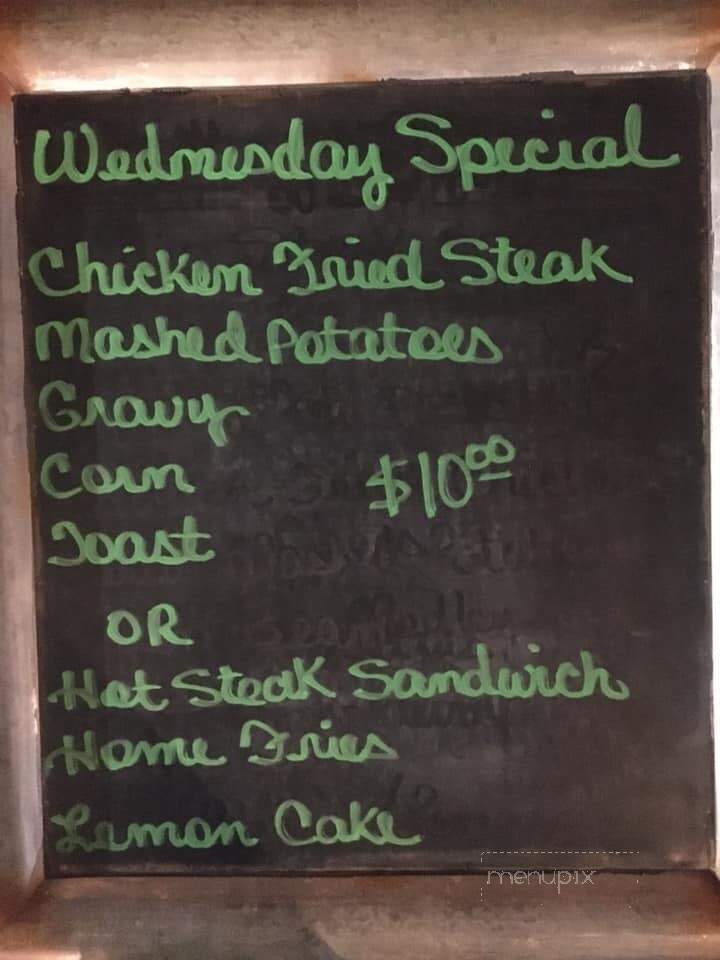 Wednesday Special
Chicken Fried Steak
Mashed Potatoes
Gravy
Corn
$10.00
Toast
OR
Hot Steak Sandwich
Home Fries
Lemon Cake
menupix